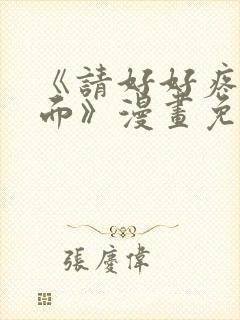 《請好好疼
而》漫畫免
張慶偉